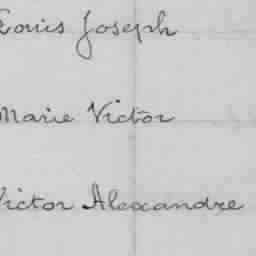 Louis Joseph
Marie Victor
Victor Alexandre